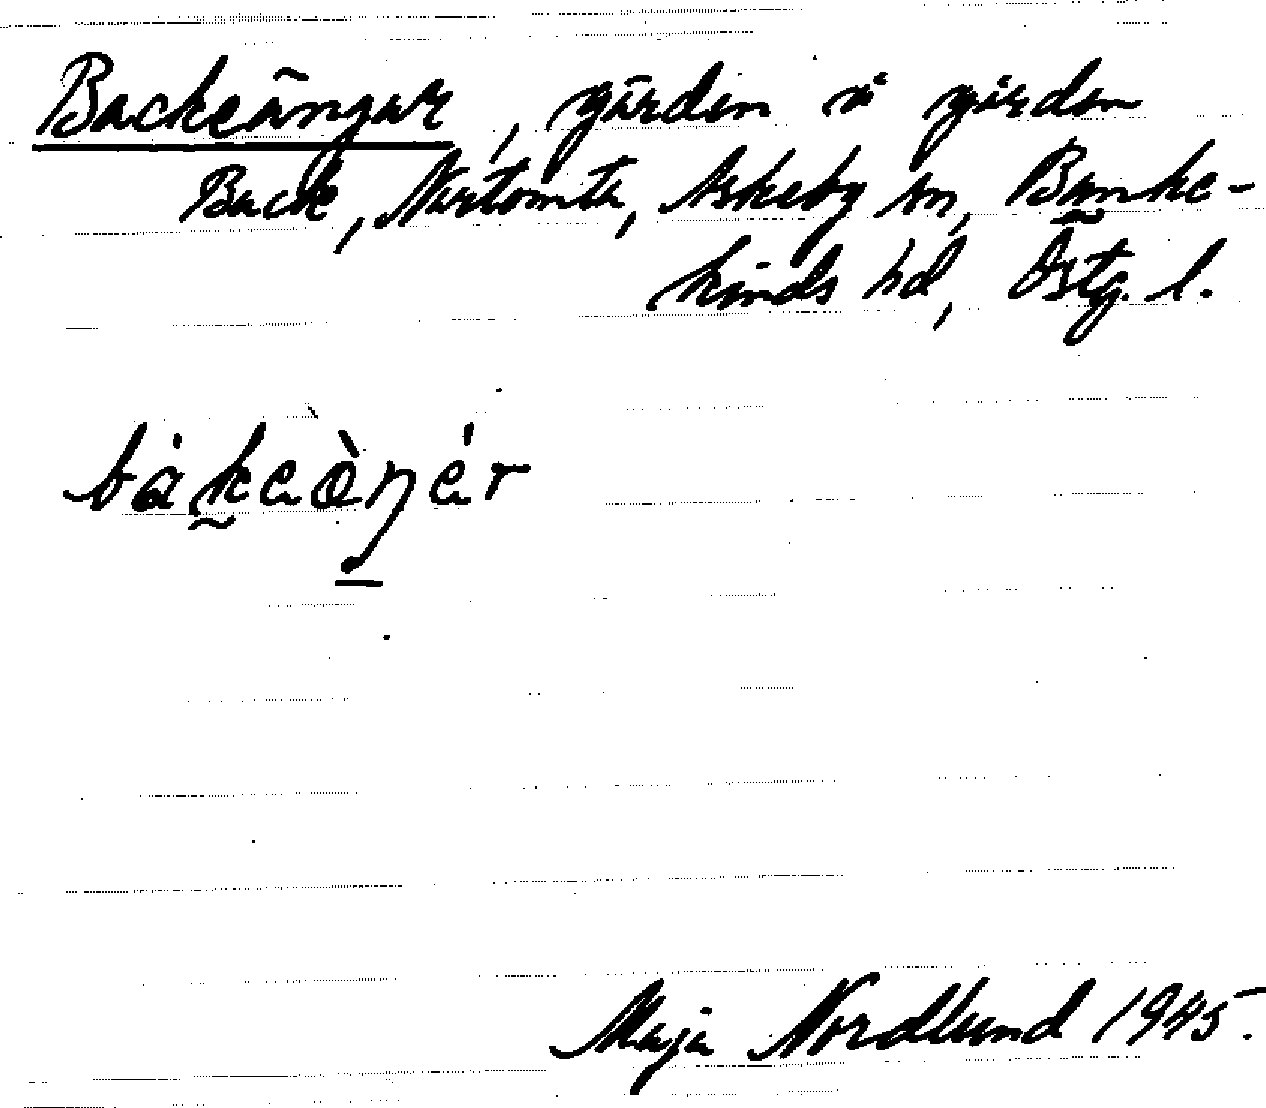 Backeängar, gärden i gården
Back, Nartomta, Askeby sn, Banke-
kinds hd, Östg. l.
bakeaŋer
Maja Nordlund 1945.